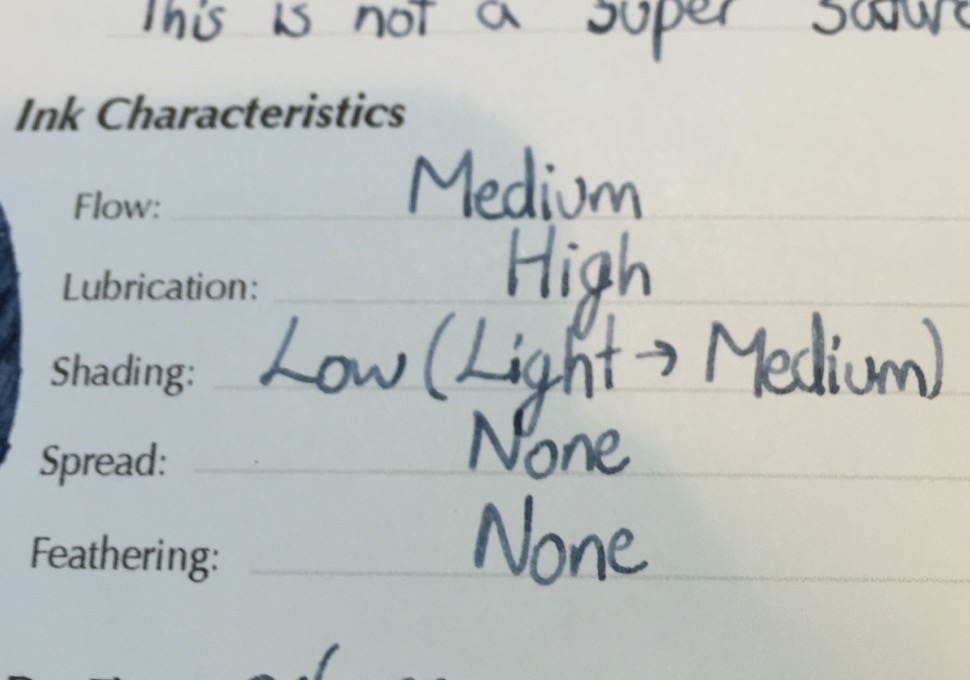 This is not a super
Ink Characteristics
Flow: Medium
Lubrication: High
Shading: Low (Light → Medium)
Spread: None
Feathering: None